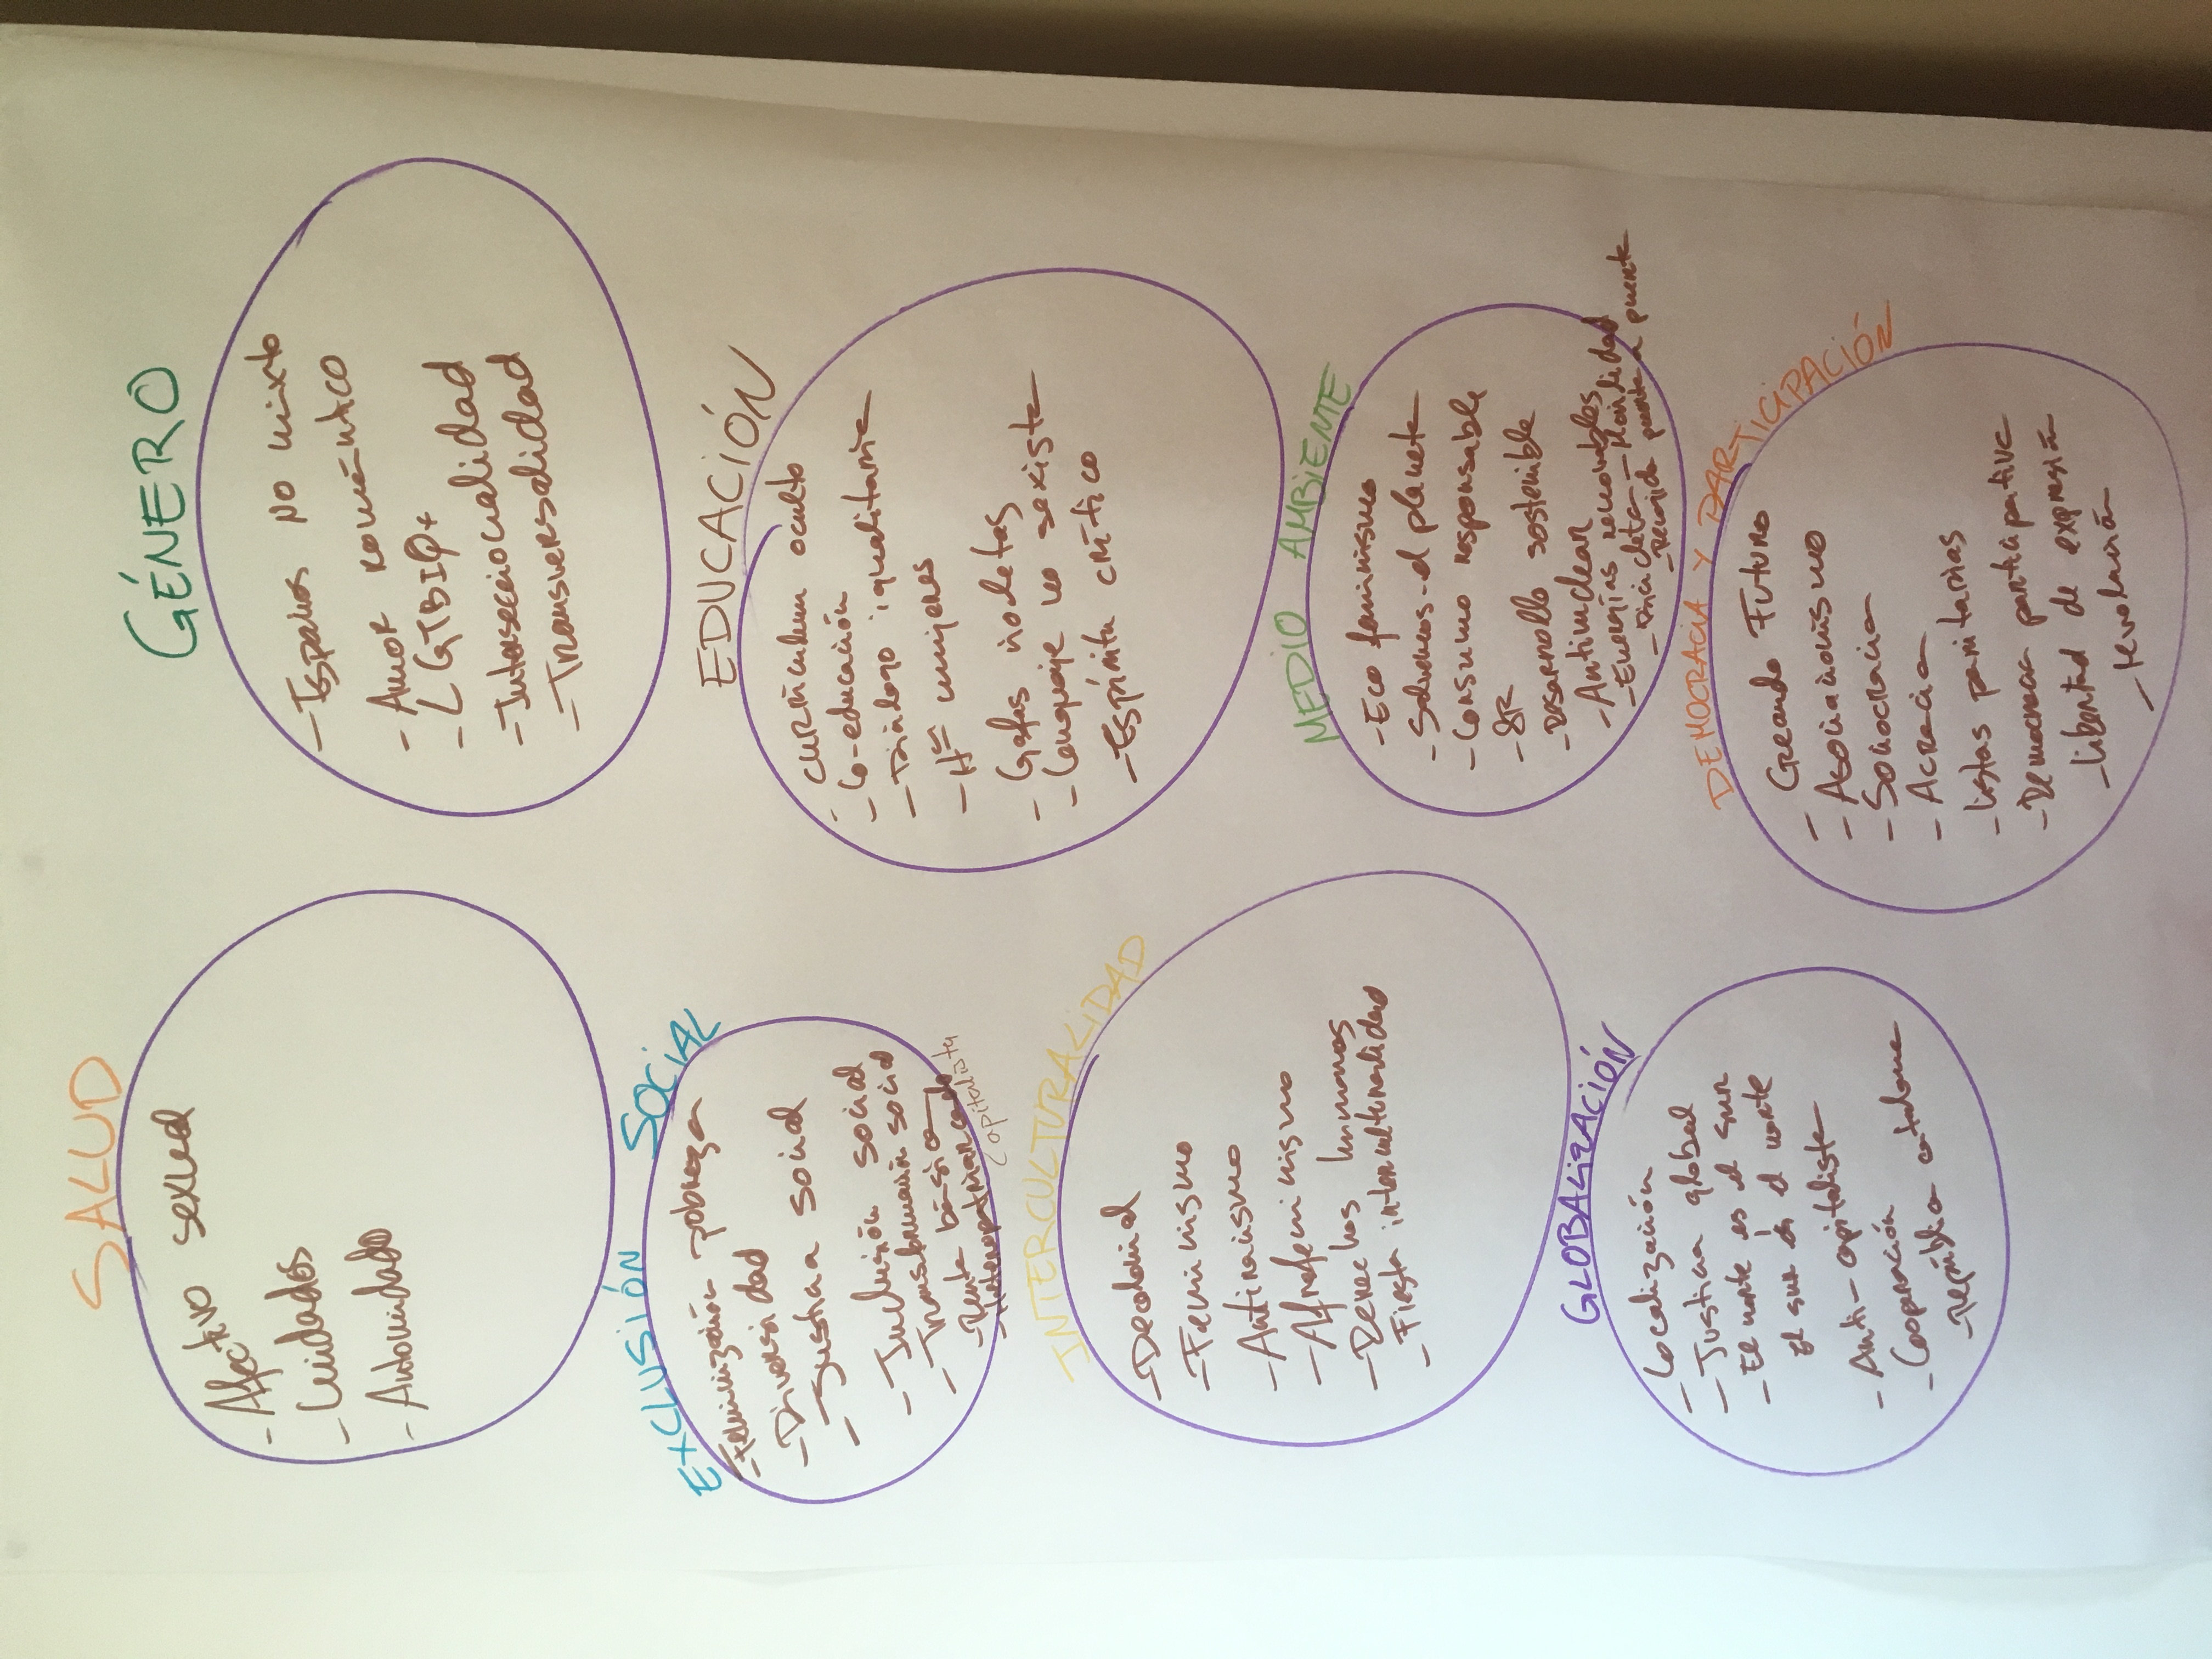 SALUD
- Afectivo sexual
- Cuidados
- Autocuidado
GÉNERO
- Espacios no mixto
- Amor romántico
- LGTBIQ+
- Interseccionalidad
- Transversalidad
EXCLUSIÓN SOCIAL
- Feminización pobreza
- Diversidad
- Justicia social
- Inclusión social
- Transformación social
- Renta básica
- Heteropatriarcado
Capitalista
EDUCACIÓN
- Currículum oculto
- Co-educación
- Diálogo igualitario
- Hª mujeres
- Gafas violetas
- Lenguaje no sexista
- Espíritu crítico
INTERCULTURALIDAD
- Decolonial
- Feminismo
- Antiracismo
- Afrofeminismo
- Derechos humanos
- Fiesta interculturalidad
MEDIO AMBIENTE
- Eco feminismo
- Salvemos el planeta
- Consumo responsable
- 8R
- Desarrollo sostenible
- Antinuclear
- Energías renovables
- Bicicleta - Movilidad
- Recogida puerta a puerta
GLOBALIZACIÓN
- Localización
- Justicia global
- El norte es el sur
El sur es el norte
- Anti-capitalista
- Cooperación
- República catalana
DEMOCRACIA Y PARTICIPACIÓN
- Creando Futuro
- Asociacionismo
- Sociocracia
- Acracia
- Listas paritarias
- Democracia participativa
- Libertad de expresión
- Revolución